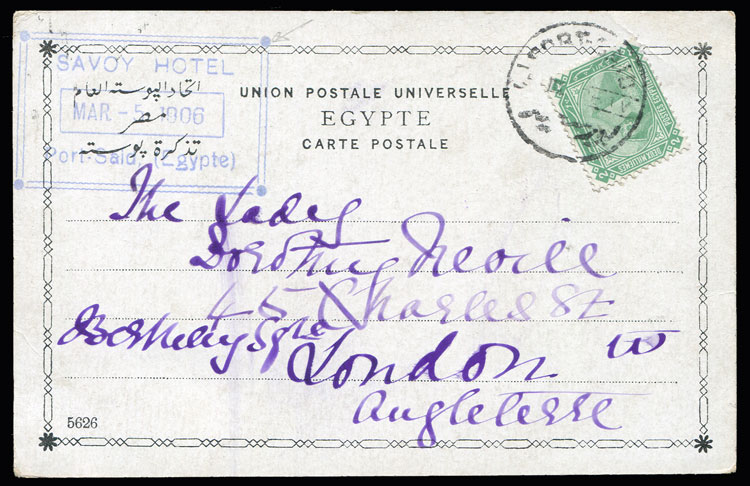 SAVOY HOTEL
اتحاد البوسته العام
MAR - 5 1906
مصر
تذكرة بوسته
Port-Said, (Egypte)
UNION POSTALE UNIVERSELLE
EGYPTE
CARTE POSTALE
The Lady
Dorothy Nevill
45 Charles St
Berkeley Sqre
London W
Angleterre
5626